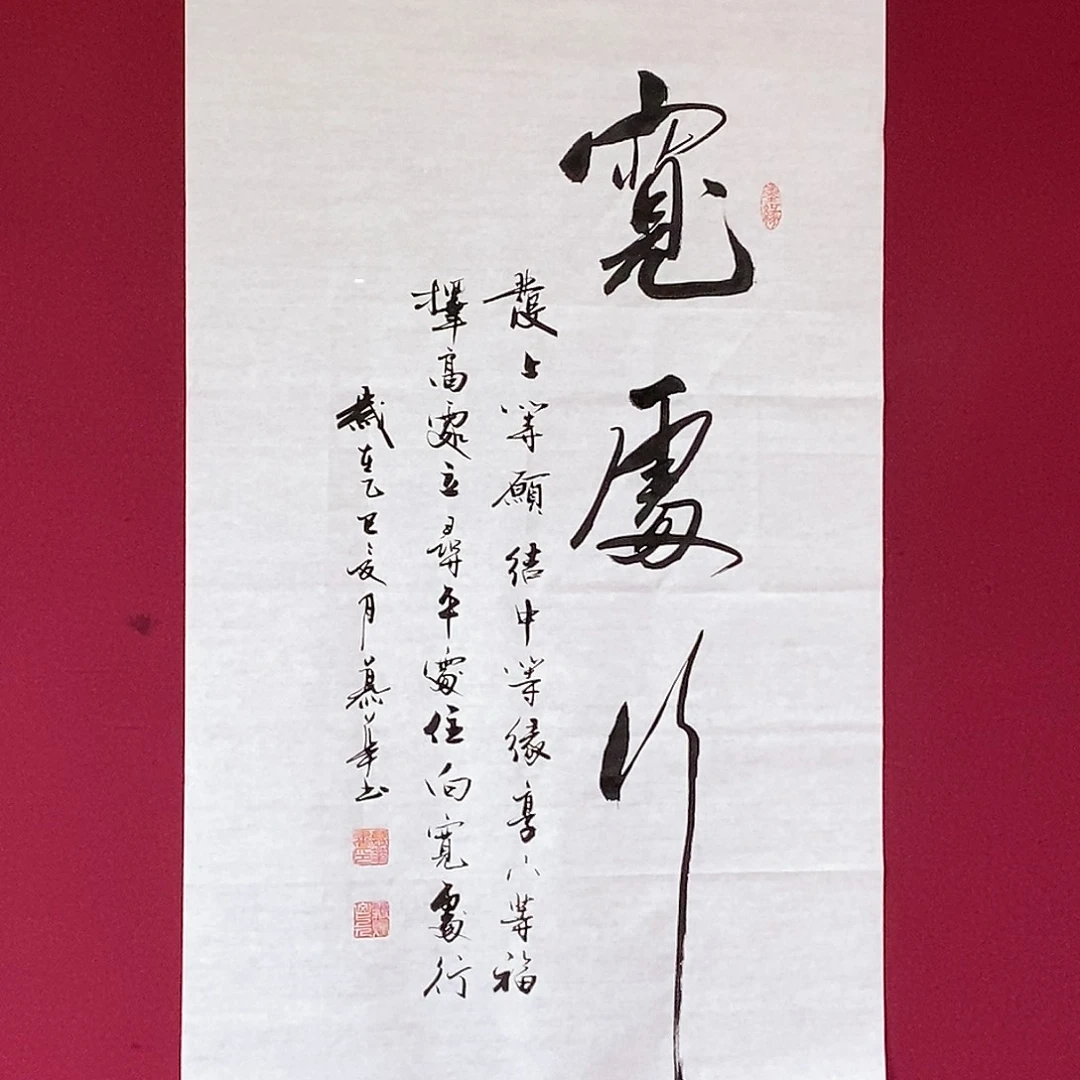 寬處行
發上等願結中等緣享下等福
擇高處立尋平處住向寬處行
歲在乙巳夏月慕華书